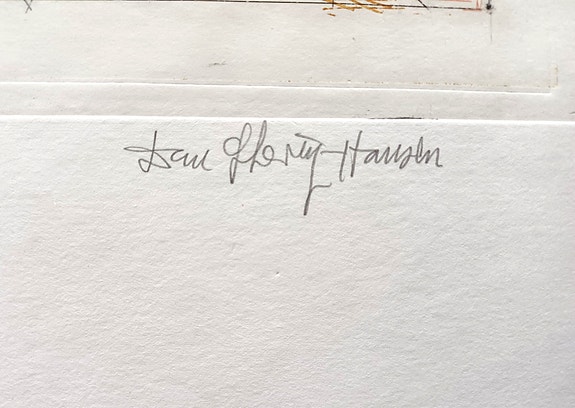 Dan Sterup-Hansen